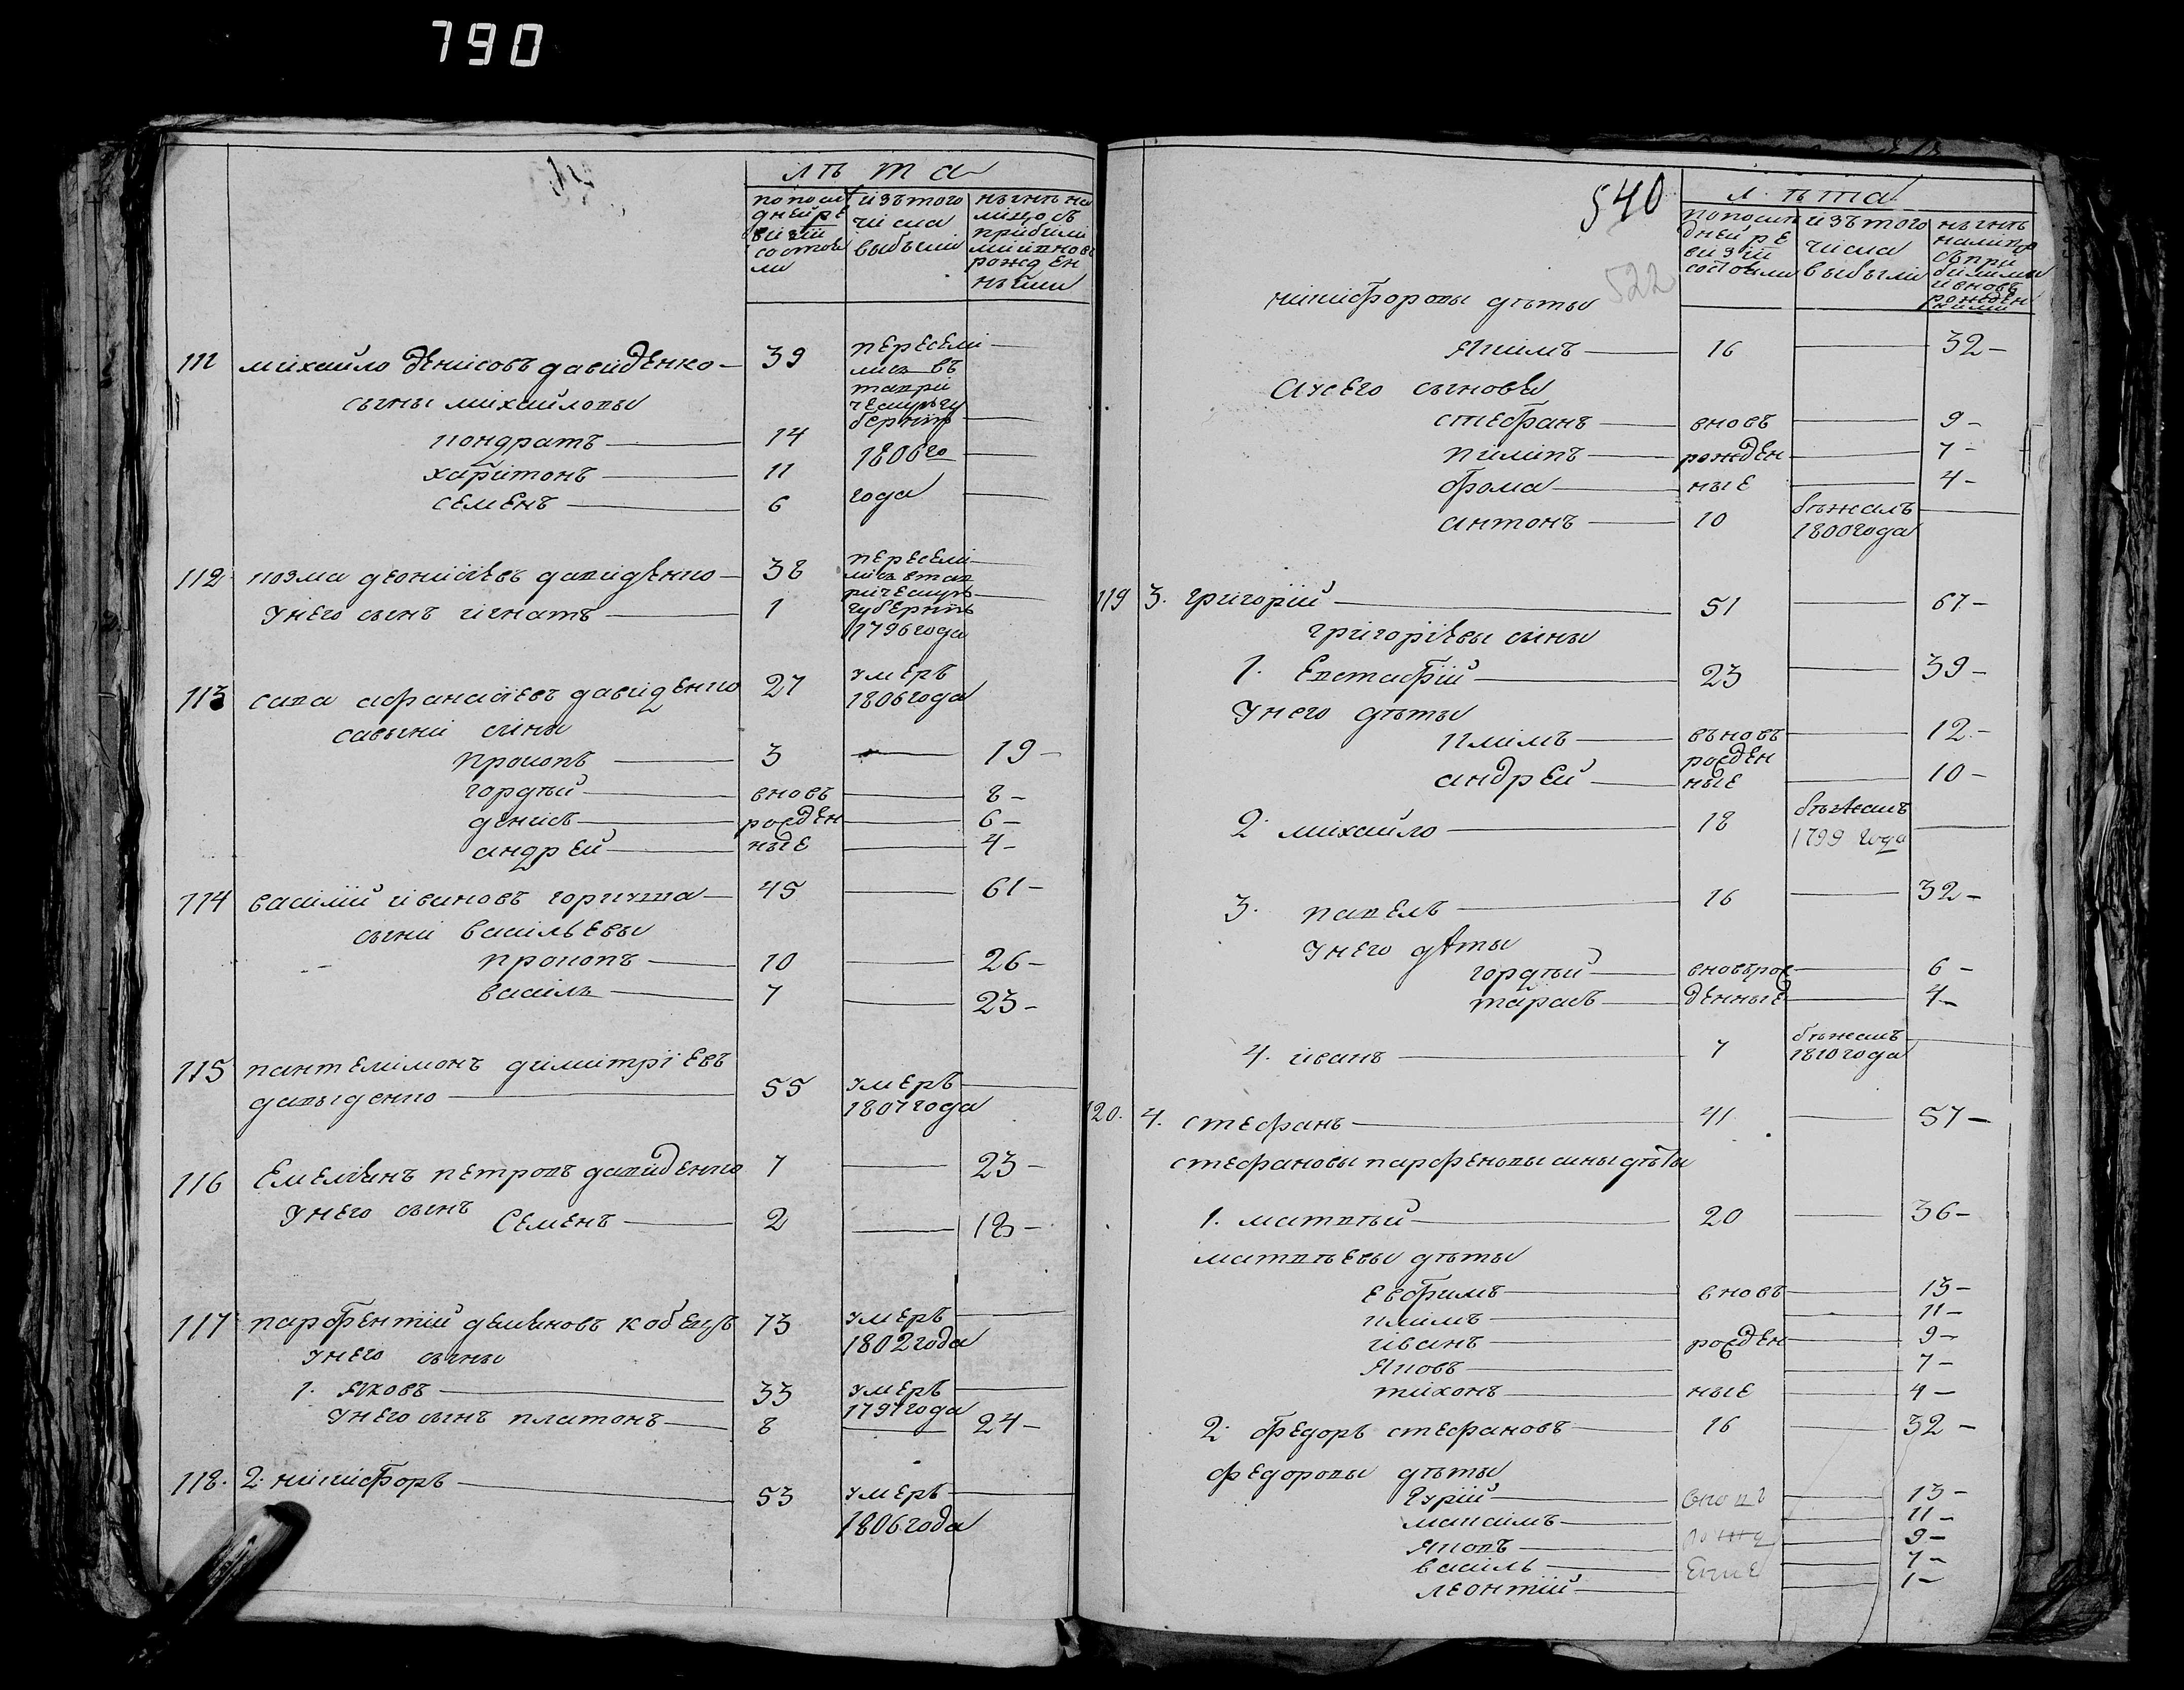 790
лѣта
по послѣ дней ре визіи состоя ли
изъ того числа выбыли
нынѣ на лицо съ прибыли ми и вновь рожден ными
111 михайло денисовъ давиденко 39 пересели лись въ таври ческую гу бернію 1806го года
сыны михайловы
кондратъ 14
харитонъ 11
семенъ 6
112 козма деонисіевъ давиденко 38 пересели лись в тав рическую губернію 1796 года
у него сынъ игнатъ 1
113 сава афанасіевъ давиденко 27 умеръ 1806 года
савыни сины
прокопъ 3 19
гордѣй вновь 8
денисъ рожден 6
андрей ные 4
114 василій ивановъ горкуша 45 61
сыни васильевы
прокопъ 10 26
василь 7 23
115 пантелимонъ димитріевъ
давыденко 55 умеръ 1807 года
116 Емелянъ петровъ давиденко 7 23
у него сынъ Семенъ 2 18
117 парфентій демяновъ кобецъ 73 умеръ 1802 года
у него сыны
1. яковъ 33 умеръ 1797 года
у него сынъ платонъ 8 24
118. 2. никифоръ 53 умеръ 1806 года
540
522
лѣта
по послѣ дней ре визіи состояли
изъ того числа выбыли
нынѣ на лицо съ при былими и вновь рожден ними
никифоровы дѣты
якимъ 16 32
а у сего сыновья
стефанъ вновь 9
пилипъ рожден 7
фома ные 4
антонъ 10 бѣжалъ 1800 года
119 3. григорій 51 67
григоріевы сины
1. Евстафій 23 39
у него дѣты
климъ въновь 12
андрей рожден ные 10
2. михайло 18 бѣжалъ 1799 года
3. павелъ 16 32
у него дѣты
гордѣй вновь рож 6
тарасъ денные 4
4. иванъ 7 бѣжалъ 1810 года
120. 4. стефанъ 41 57
стефановы парфеновы сины дѣты
1. матвѣй 20 36
матвѣевы дѣты
евфимъ вновь 13
климъ 11
иванъ рожден 9
яковъ 7
тихонъ ные 4
2. федоръ стефановъ 16 32
федоровы дѣты
гурій вновь 13
максимъ 11
яковъ рожд 9
василь енные 7
леонтій 1